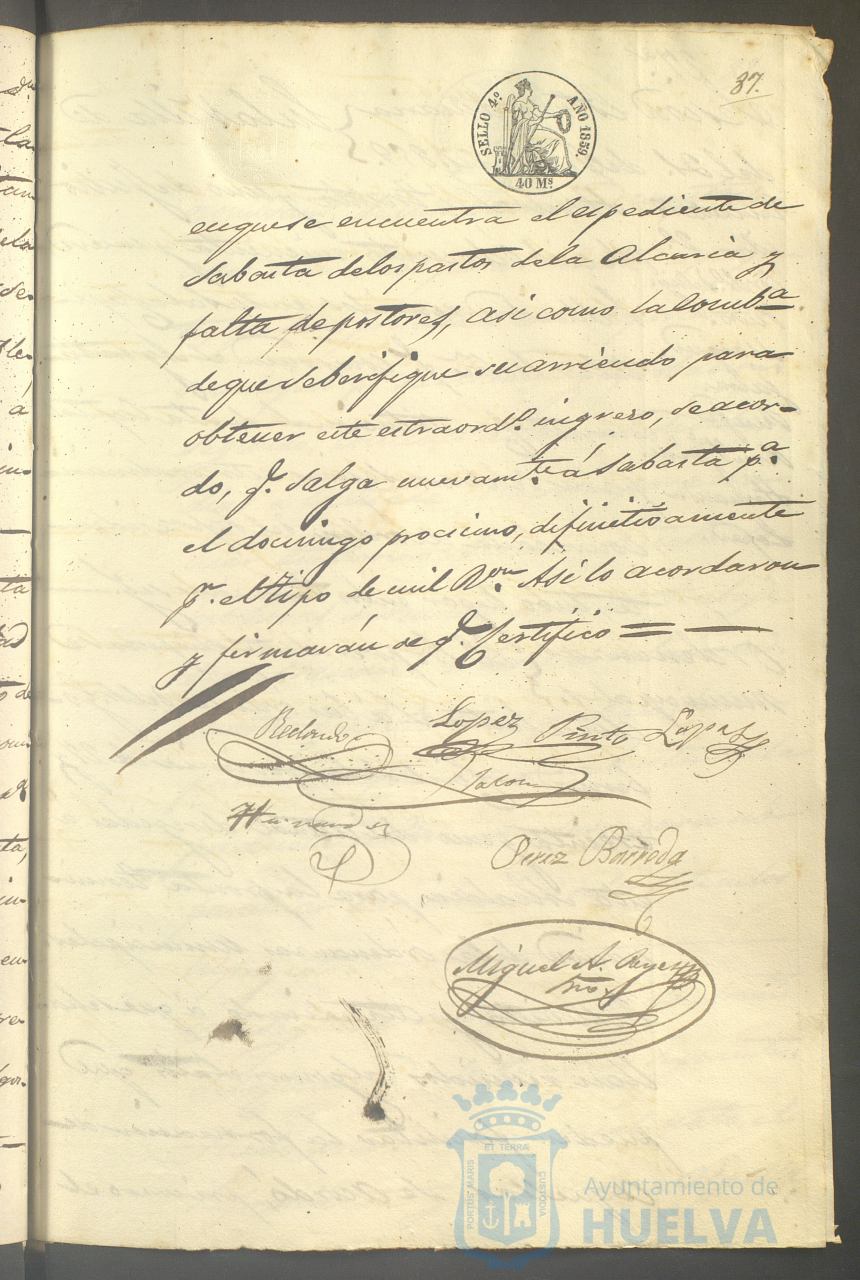 87.
SELLO 4º AÑO 1859.
40 Ms
en que se encuentra el espediente de
subasta de los pastos de la Alcaria y
falta de postores, asi como la comba
de que se berifique su arriendo para
obtener este estraordº. ingreso, se acor-
do, q. salga nuevamte. á subasta pa.
el domingo procsimo, difinitivamente
pr. el tipo de mil Rvn. Asi lo acordaron
y firmarán de q. Certifico = —
Redondo Lopez Pinto Lopez
Hernandez
Perez Barreda
Miguel A.
Srio
ET TERRA
PORTUS MARIS
CUSTODIA
Ayuntamiento de
HUELVA